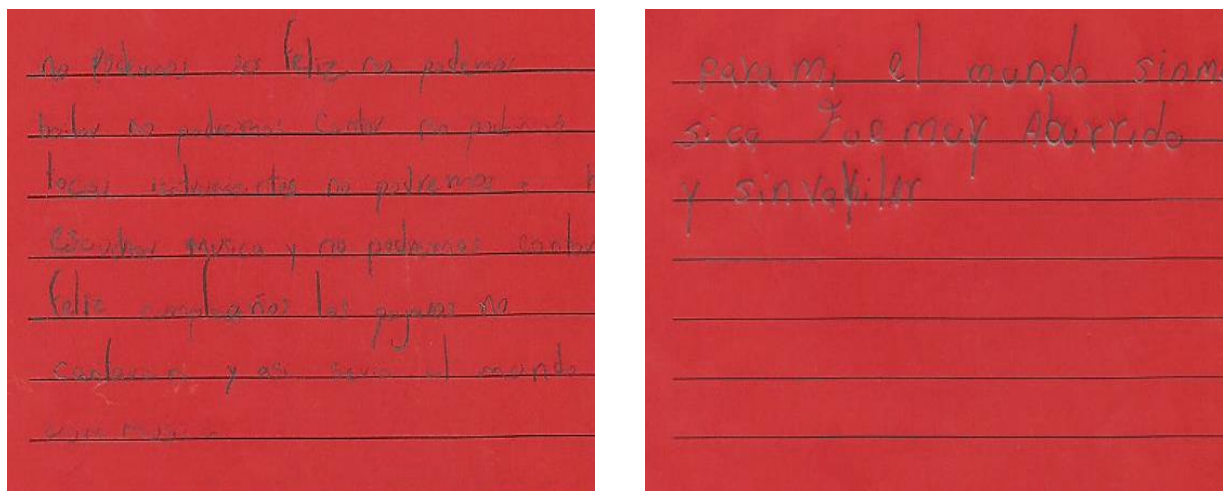 no Podemos ser feliz no podemos
bailar no podremos Cantar no podemos
tocar instrumentos no podremos
Escuchar musica y no podremos cantar
feliz cumpleaños los pajaros no
cantaran y asi seria el mundo
sin musica
para mi el mundo sinm
sica Fue muy Aburrido
y sin